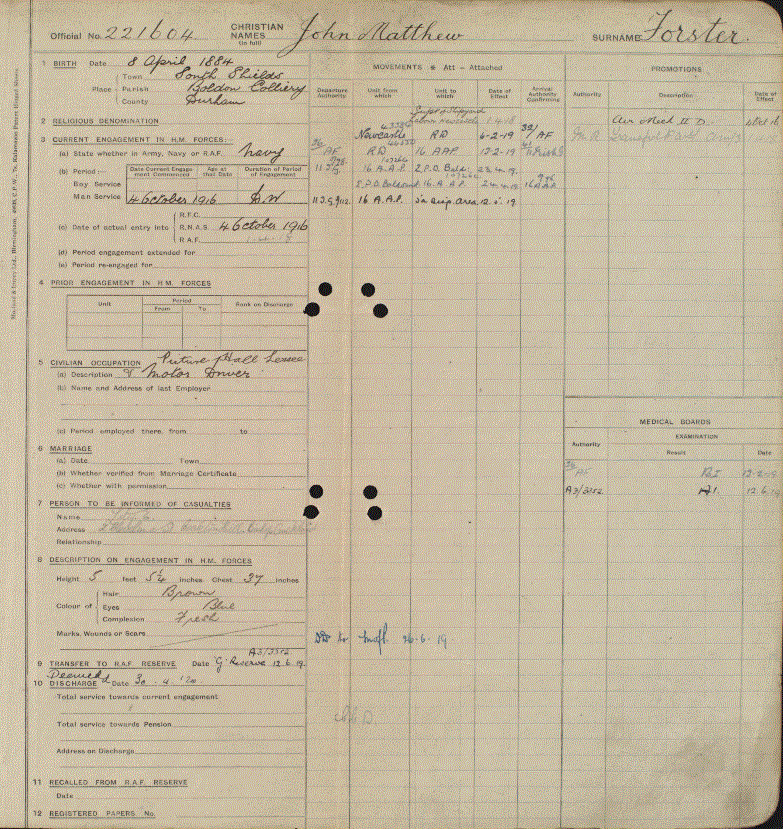 Official No. 221604 CHRISTIAN NAMES (in full) John Matthew SURNAME Forster.
1 BIRTH Date 8 April 1884
Place Town South Shields
Parish Boldon Colliery
County Durham
2 RELIGIOUS DENOMINATION
3 CURRENT ENGAGEMENT IN H.M. FORCES:
(a) State whether in Army, Navy or R.A.F. Navy
(b) Period:— Date Current Engagement Commenced Age at that Date Duration of Period of Engagement
Boy Service
Man Service 4 October 1916 D.W
(c) Date of actual entry into R.F.C.
R.N.A.S. 4 October 1916
R.A.F.
(d) Period engagement extended for
(e) Period re-engaged for
4 PRIOR ENGAGEMENT IN H.M. FORCES
Unit Period From To Rank on Discharge
5 CIVILIAN OCCUPATION Picture Hall Lessee
(a) Description & Motor Driver
(b) Name and Address of last Employer
(c) Period employed there, from to
6 MARRIAGE
(a) Date Town
(b) Whether verified from Marriage Certificate
(c) Whether with permission
7 PERSON TO BE INFORMED OF CASUALTIES
Name
Address
Relationship
8 DESCRIPTION ON ENGAGEMENT IN H.M. FORCES
Height 5 feet 5¼ inches Chest 37 inches
Colour of Hair Brown
Eyes Blue
Complexion Fresh
Marks, Wounds or Scars
A3/3352
9 TRANSFER TO R.A.F. RESERVE Date G Reserve 12.6.19.
Deemed
10 DISCHARGE Date 30.4.20
Total service towards current engagement
Total service towards Pension
Address on Discharge
11 RECALLED FROM R.A.F. RESERVE
Date
12 REGISTERED PAPERS No.
MOVEMENTS * Att = Attached
Departure Authority Unit from which Unit to which Date of Effect Arrival Authority Confirming
1-4-18
Newcastle RD 6-2-19 32/AF
RD 16 AAP 12-2-19
16 A.A.P. 2 P.D. Bold. 23.4.19.
5 P.D. 16 A.A.P. 24.4.19
16 A.A.P. Disp. area 12.5.19
26-6-19
PROMOTIONS
Authority Description Date of Effect
Air Mech II D.
MEDICAL BOARDS
Authority EXAMINATION
Result Date
AF BI 12-2-19
A3/3352 A1. 12.6.19